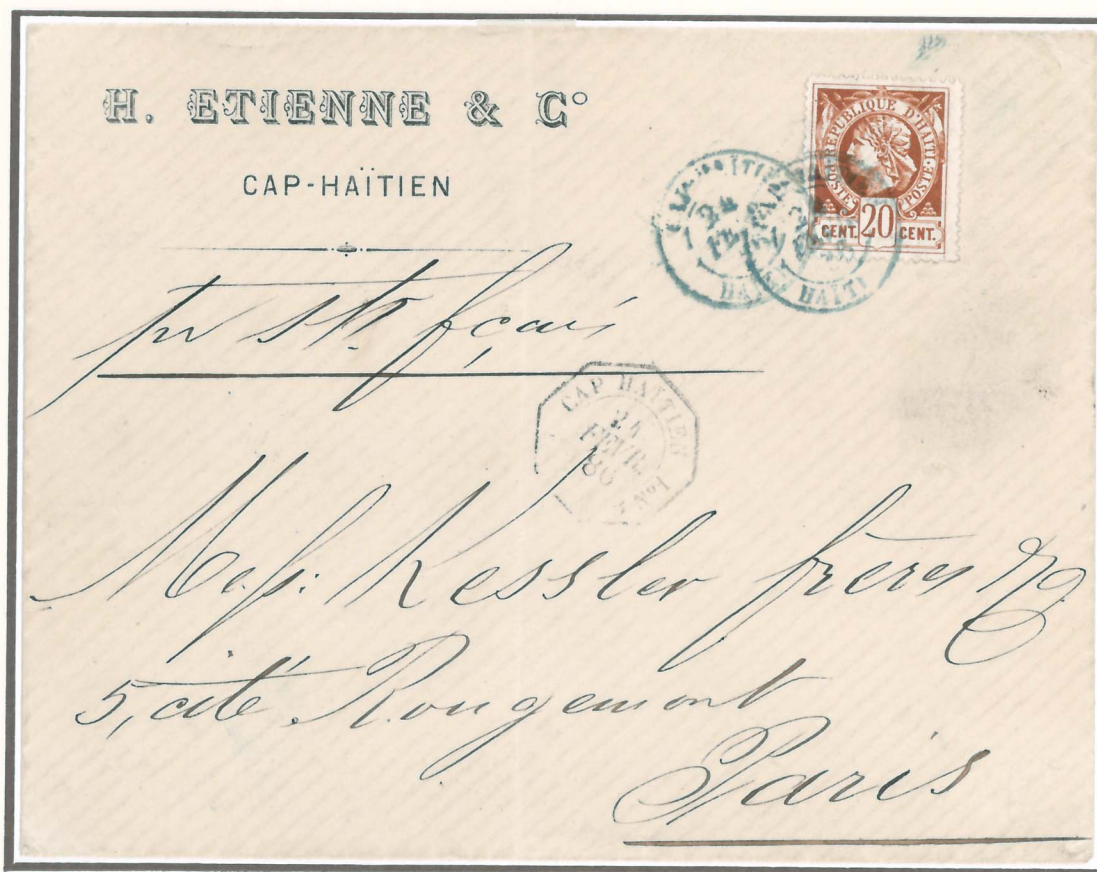 H. ETIENNE & Cº
CAP-HAÏTIEN
REPUBLIQUE D'HAITI
POSTE POSTE
CENT. 20 CENT.
HAITI
pr str. fçais
CAP HAÏTIEN
24
FEVR.
86
Mess. Kessler frères & Co
5, cité Rougemont
Paris